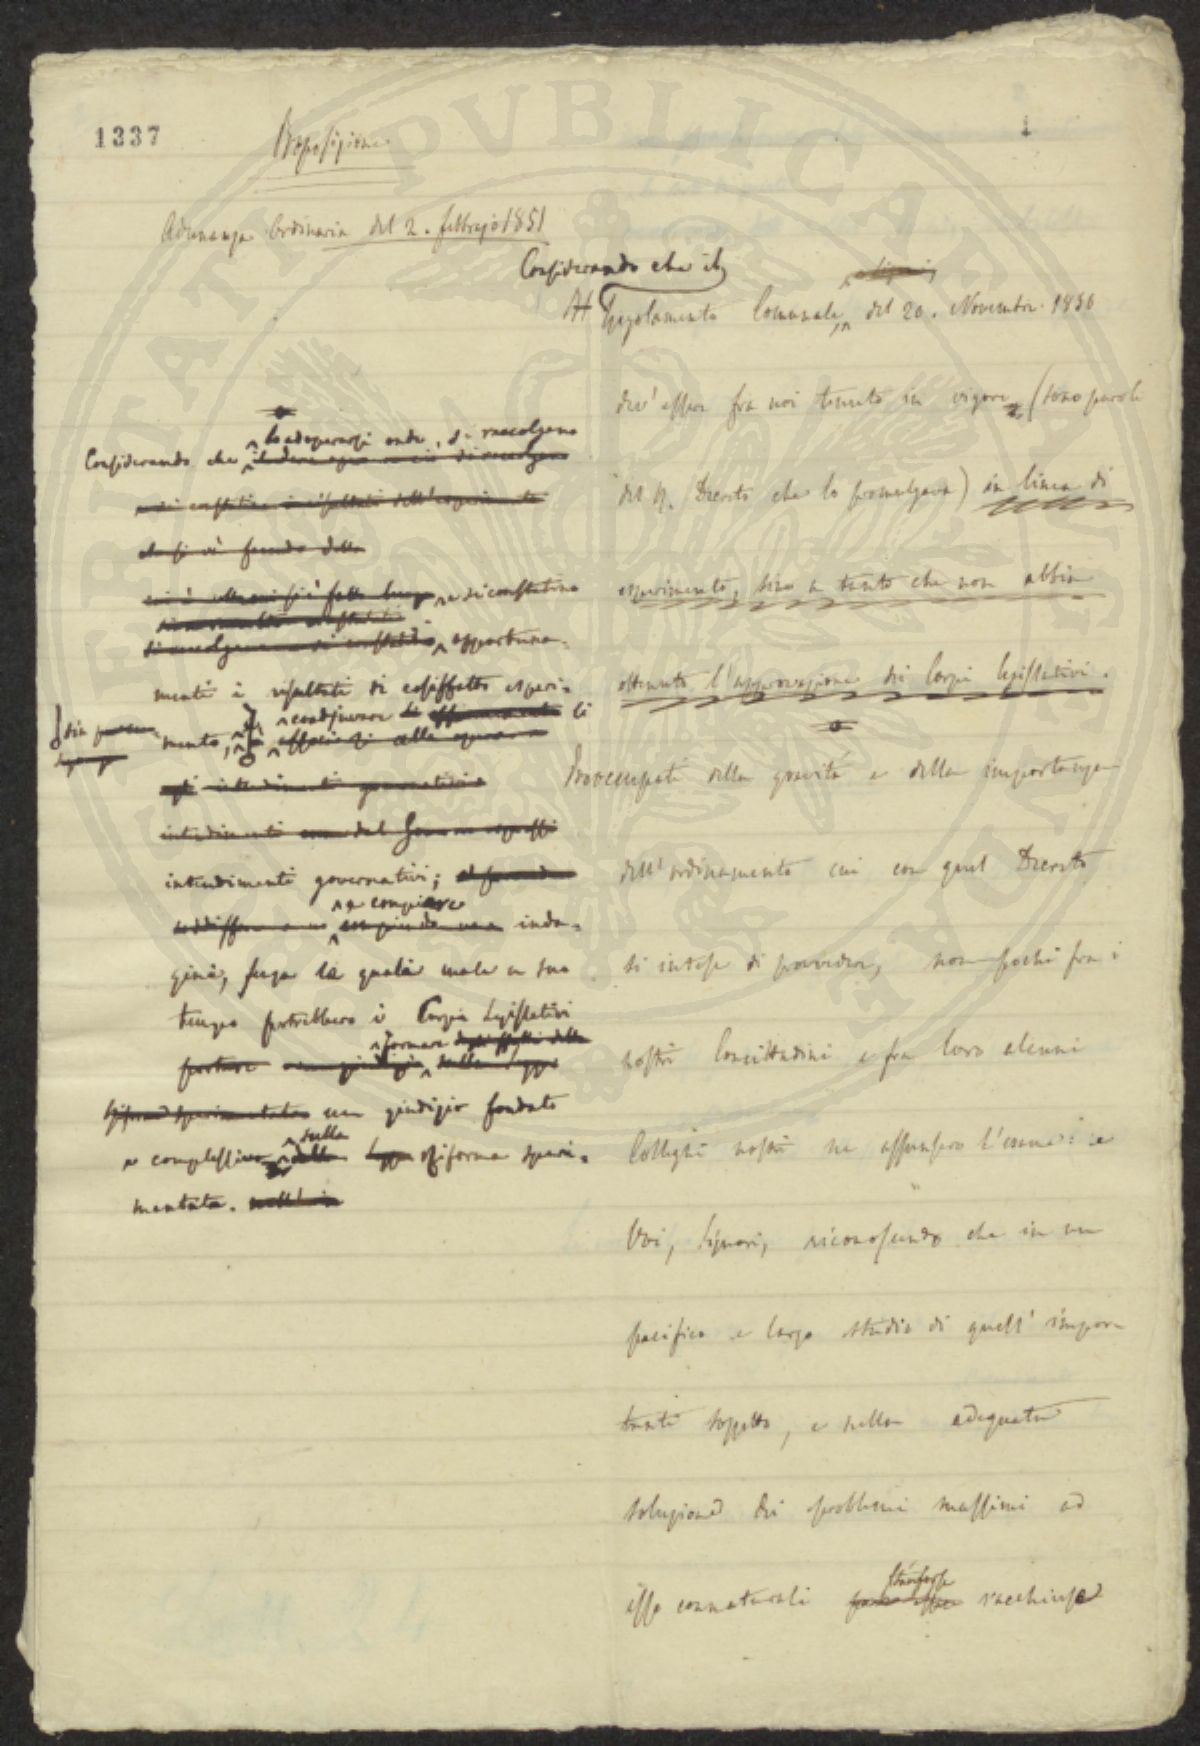 1337
1
Proposizione
Adunanza Ordinaria del 2. febbrajo 1851
Considerando che il
Il Regolamento Comunale del 20. Novembre 1850
dev' essere fra noi tenuto in vigore (sono parole
del R. Decreto che lo promulgava) in linea di
esperimento, sino a tanto che non abbia
ottenuto l'approvazione dei Corpi legislativi.
Preoccupati della gravità e della importanza
dell' ordinamento cui con quel Decreto
si intese di provvedere, non pochi fra i
nostri Concittadini e fra loro alcuni
Colleghi nostri ne assunsero l'esame: e
Voi, Signori, riconoscendo che in un
pacifico e largo studio di quell' impor-
tante soggetto, e nella adeguata
soluzione dei problemi massimi ad
esso connaturali stà forse racchiuso
Considerando che lo adoperarsi onde si raccolgano
e si constatino
opportuna-
mente i risultati di cosiffatto esperi-
mento, è coadjuvare li
intendimenti governativi;
e compiere inda-
gini, senza le quali male a suo
tempo potrebbero i Corpi Legislativi
formare
un giudizio fondato
e complessivo sulla riforma speri-
mentata.